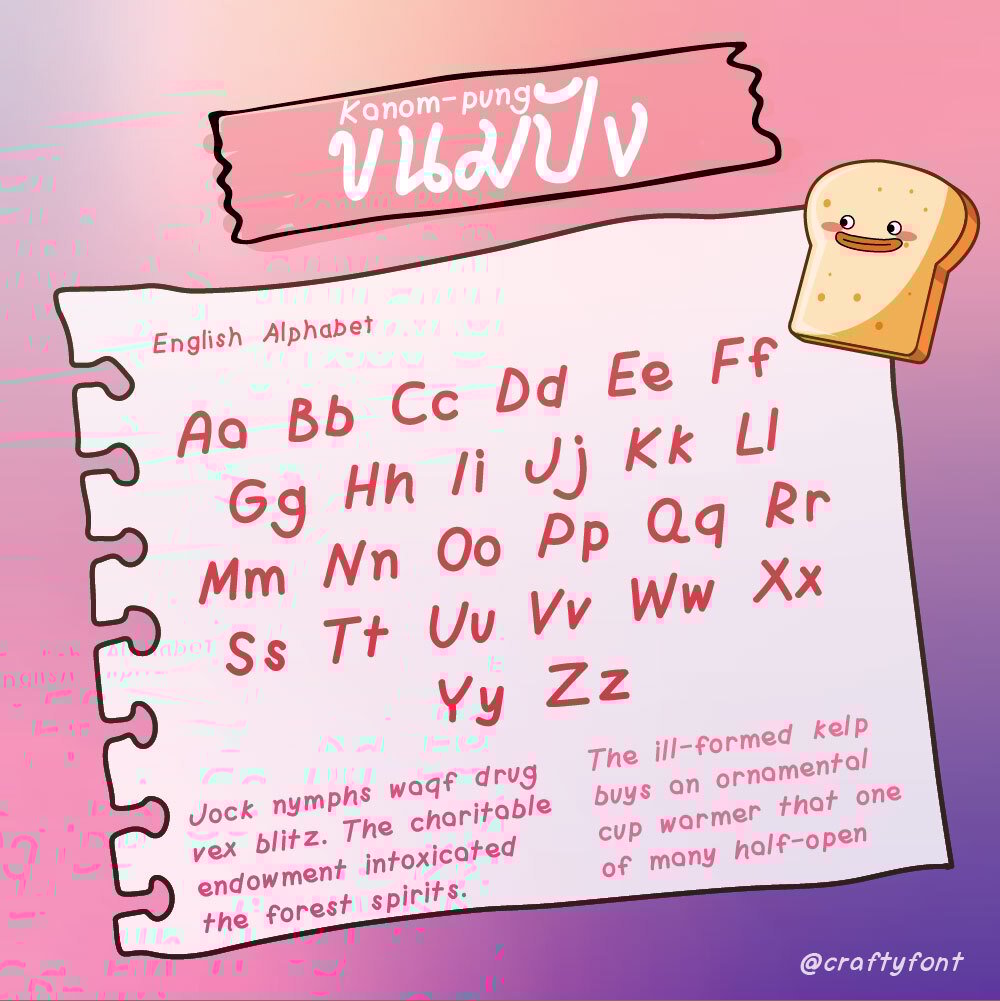 Kanom-pung
ขนมปัง
English Alphabet
Aa Bb Cc Dd Ee Ff
Gg Hh Ii Jj Kk Ll
Mm Nn Oo Pp Qq Rr
Ss Tt Uu Vv Ww Xx
Yy Zz
Jock nymphs waqf drug
vex blitz. The charitable
endowment intoxicated
the forest spirits.
The ill-formed kelp
buys an ornamental
cup warmer that one
of many half-open
@craftyfont